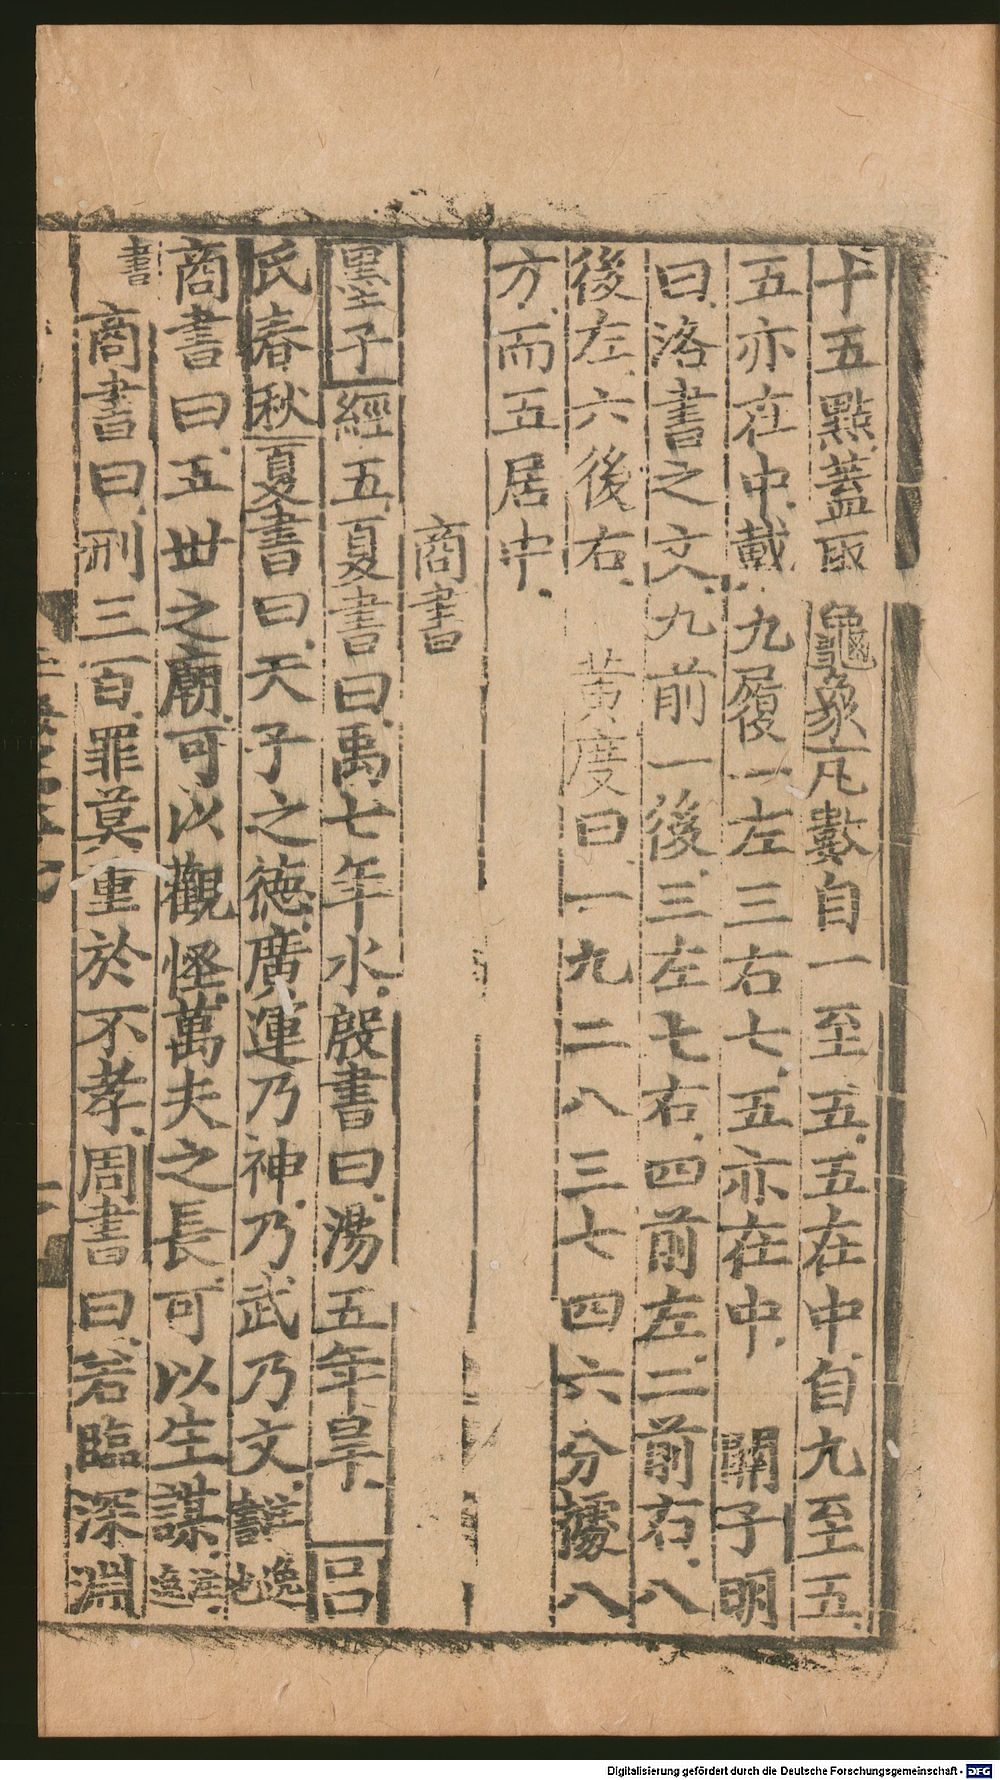 十五點蓋取龜象凡數自一至五五在中自九至五
五亦在中戴九履一左三右七五亦在中 關子明
曰洛書之文九前一後三左七右四前左二前右八
後左六後右 黃度曰一九二八三七四六分據八
方而五居中
商書
墨子經五夏書曰禹七年水殷書曰湯五年旱 呂
氏春秋夏書曰天子之德廣運乃神乃武乃文註逸也
商書曰五丗之廟可以觀怪萬夫之長可以生謀註逸
書商書曰刑三百罪莫重於不孝周書曰若臨深淵
Digitalisierung gefördert durch die Deutsche Forschungsgemeinschaft - DFG